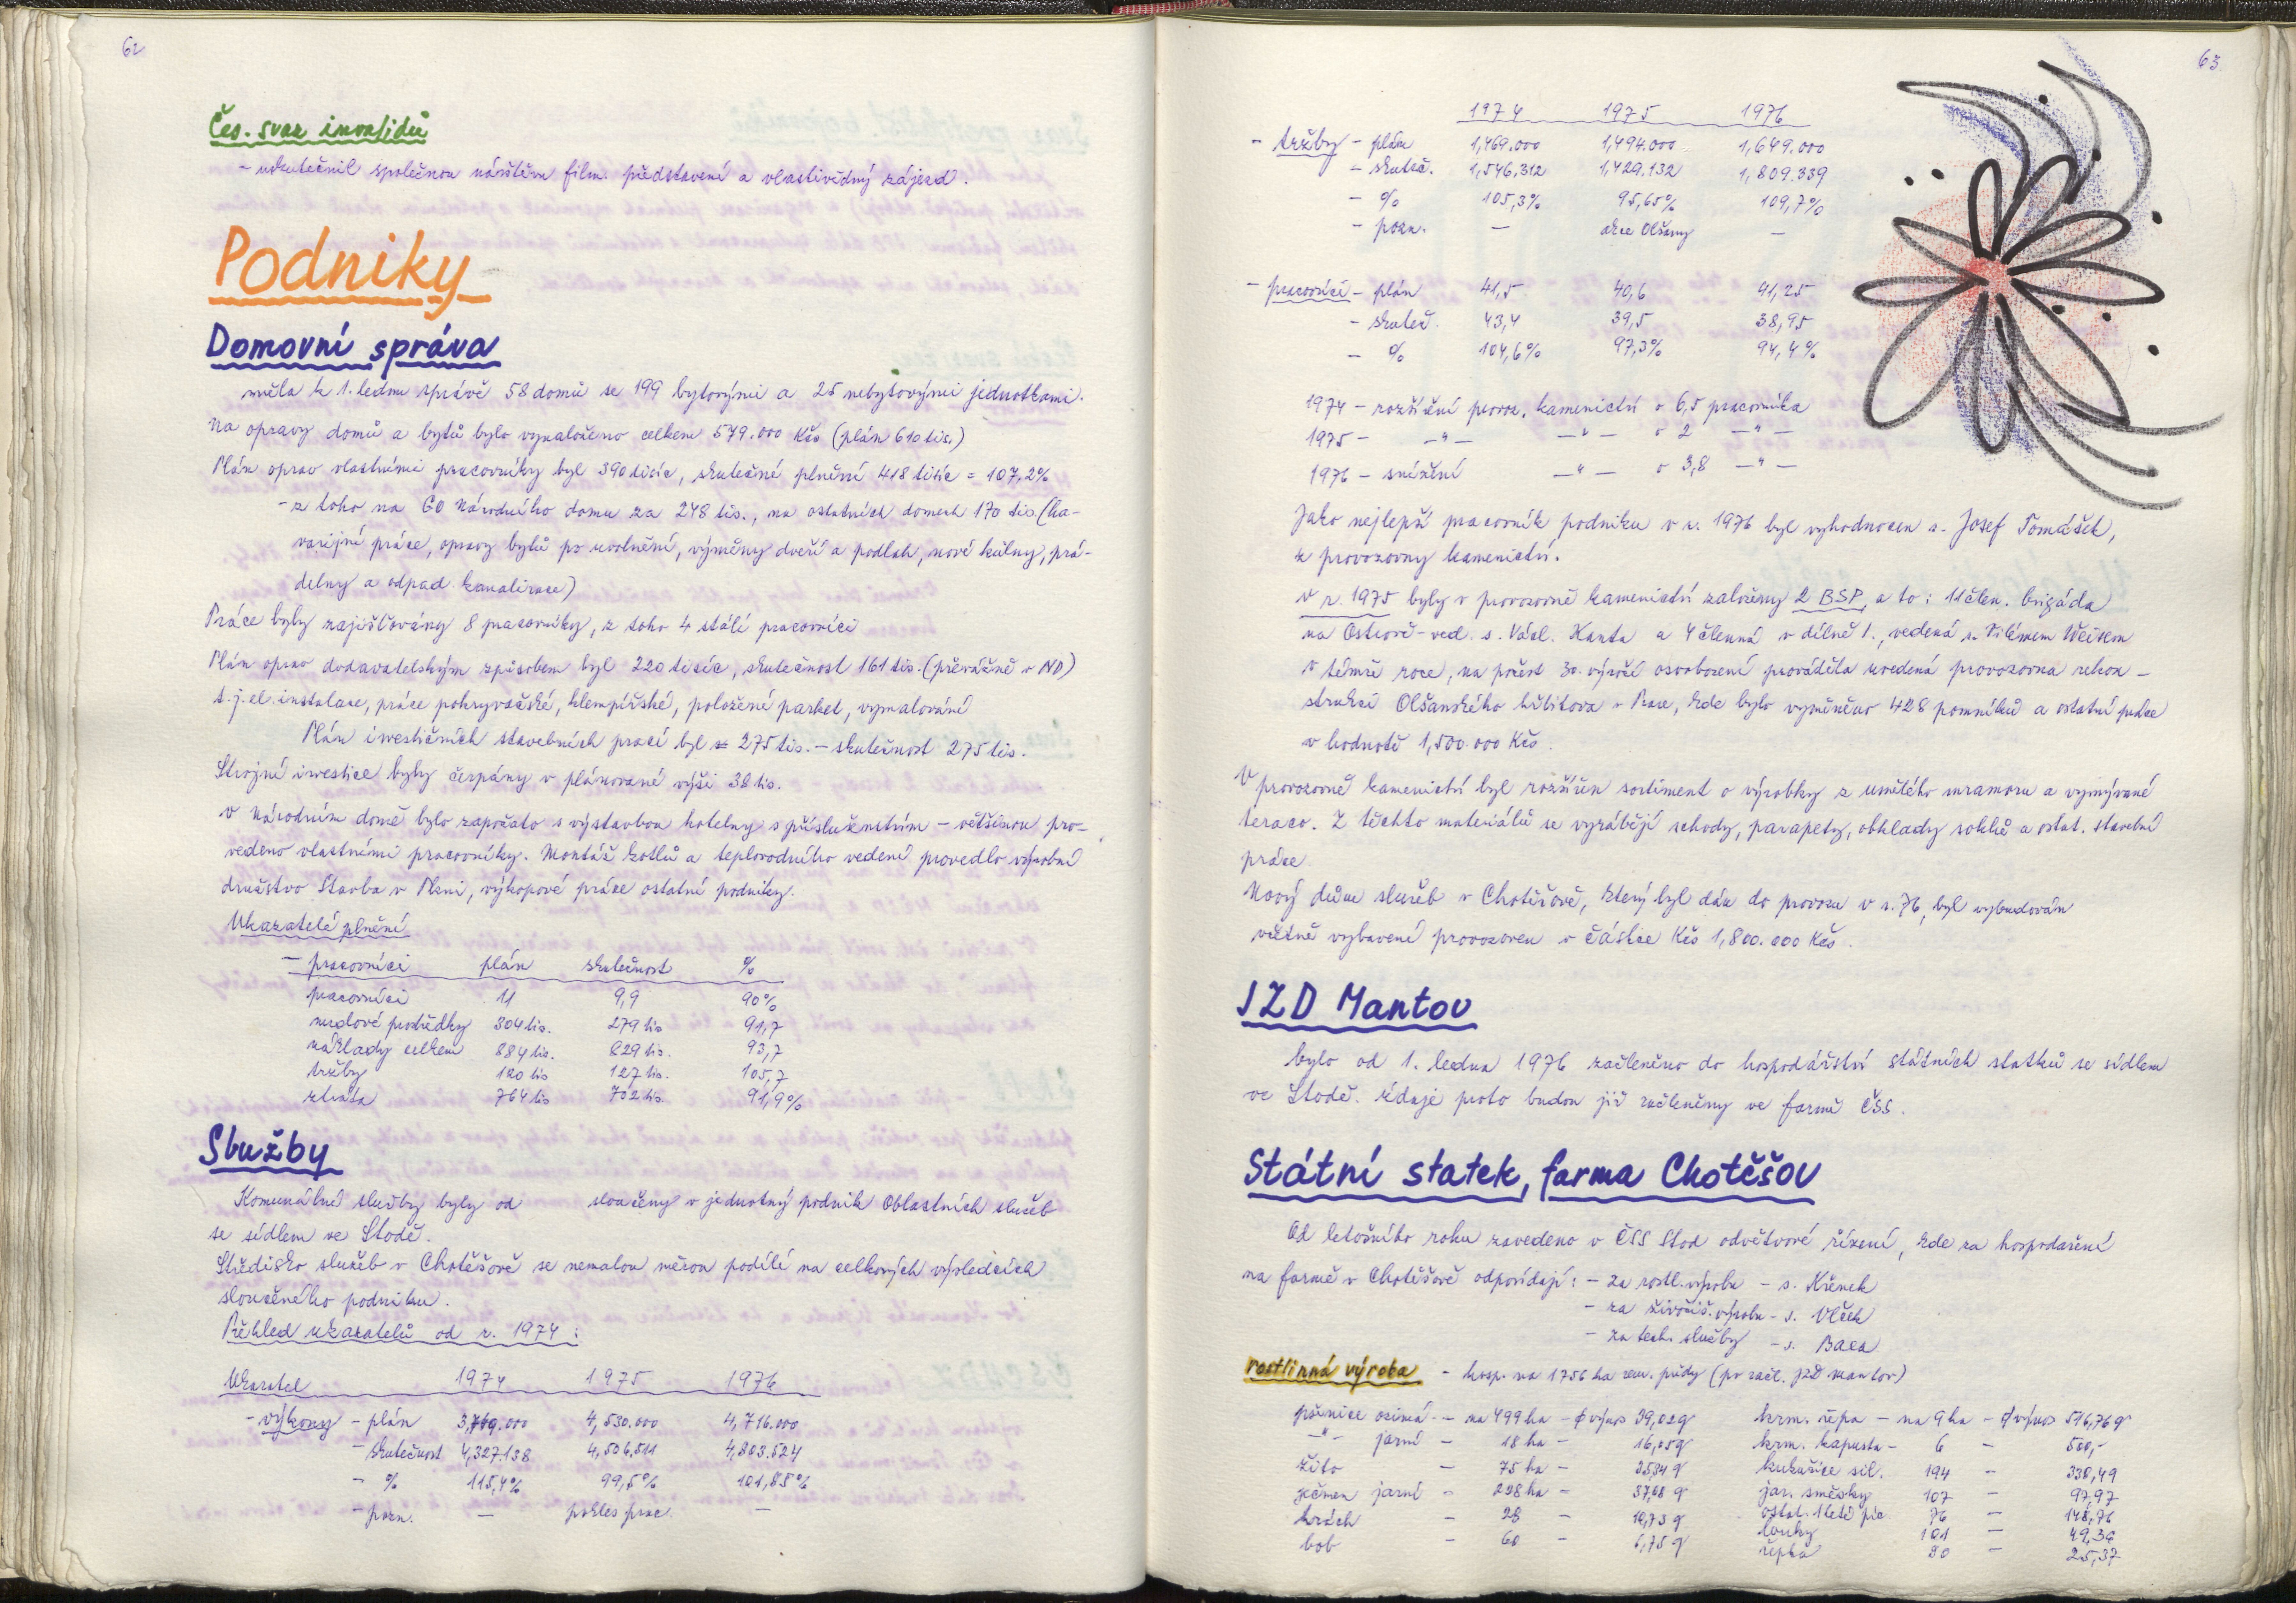 62
Čes. svaz invalidů
- uskutečnil společnou návštěvu film. představení a vlastivědný zájezd.
Podniky
Domovní správa
měla k 1. lednu správě 58 domů se 199 bytovými a 25 nebytovými jednotkami.
Na opravy domů a bytů bylo vynaloženo celkem 579.000 Kčs (plán 610 tis.)
Plán oprav vlastními pracovníky byl 390 tisíc, skutečné plnění 418 tisíc = 107,2%
- z toho na GO Národního domu za 248 tis., na ostatních domech 170 tis. (ha-
varijní práce, opravy bytů po uvolnění, výměny dveří a podlah, nové kůlny, prá-
delny a odpad. kanalizace)
Práce byly zajišťovány 8 pracovníky, z toho 4 stálí pracovníci
Plán oprav dodavatelským způsobem byl 220 tisíc, skutečnost 161 tis. (převážně v ND)
t.j. el. instalace, práce pokryvačské, klempířské, položení parket, vymalování
Plán investičních stavebních prací byl 275 tis. - skutečnost 275 tis.
Strojní investice byly čerpány v plánované výši 38 tis.
V Národním domě bylo započato s výstavbou kotelny s příslušenstvím - většinou pro-
vedeno vlastními pracovníky. Montáž kotlů a teplovodního vedení provedlo výrobní
družstvo Stavba v Plzni, výkopové práce ostatní podniky.
Ukazatelé plnění
- pracovníci plán skutečnost %
pracovníci 11 9,9 90%
mzdové prostředky 304 tis. 279 tis 91,7
náklady celkem 884 tis. 829 tis. 93,7
tržby 120 tis 127 tis. 105,7
ztráta 764 tis 702 tis. 91,9%
Služby
Komunální služby byly od sloučeny v jednotný podnik Oblastních služeb
se sídlem ve Stodě.
Středisko služeb v Chotěšově se nemalou měrou podílí na celkových výsledcích
sloučeného podniku.
Přehled ukazatelů od r. 1974:
Ukazatel 1974 1975 1976
- výkony - plán 4,530.000 4,716.000
- skutečnost 4,327.138 4,506.511 4,803.524
- % 115,4% 99,5% 101,85%
- pozn. - pokles prac. -
63
1974 1975 1976
- tržby - plán 1,469.000 1,494.000 1,649.000
- skuteč. 1,546,312 1,429.132 1,809.339
- % 105,3% 95,65% 109,7%
- pozn. - akce Olšany -
- pracovníci - plán 41,5 40,6 41,25
- skuteč. 43,4 39,5 38,95
- % 104,6% 97,3% 94,4%
1974 - rozšíření provoz. kamenictví o 6,5 pracovníka
1975 - -"- -"- o 2 -"-
1976 - snížení -"- o 3,8 -"-
Jako nejlepší pracovník podniku v r. 1976 byl vyhodnocen s. Josef Tomášek,
z provozovny kamenictví.
V r. 1975 byly v provozovně kamenictví založeny 2 BSP, a to: 11 člen. brigáda
na Ostrově - ved. s. Václ. Kanta a 4 členná v dílně 1., vedená s. Vilémem
V témže roce, na počest 30. výročí osvobození prováděla uvedená provozovna rekon-
strukci Olšanského hřbitova v Praze, kde bylo vyměněno 428 pomníků a ostatní práce
v hodnotě 1,500.000 Kčs.
V provozovně kamenictví byl rozšířen sortiment o výrobky z umělého mramoru a vymývané
teraco. Z těchto materiálů se vyrábějí schody, parapety, obklady soklů a ostat. stavební
práce.
Nový dům služeb v Chotěšově, který byl dán do provozu v r. 76, byl vybudován
včetně vybavení provozoven v částce Kčs 1,800.000 Kčs.
JZD Mantov
bylo od 1. ledna 1976 začleněno do hospodářství státních statků se sídlem
ve Stodě. Údaje proto budou již začleněny ve farmě ČSS.
Státní statek, farma Chotěšov
Od letošního roku zavedeno v ČSS Stod odvětvové řízení, kde za hospodaření
na farmě v Chotěšově odpovídají: - za rostl. výrobu - s. Křenek
- za živočiš. výrobu - s. Vlček
- za tech. služby - s. Baxa
rostlinná výroba - hosp. na 1756 ha zem. půdy (po zač. JZD Mantov)
pšenice ozimá - na 499 ha - ϕ výnos 39,02q krm. řepa - na 9 ha - ϕ výnos 516,76 q
-"- jarní - 18 ha - 16,05q krm. kapusta - 6 - 500,-
žito - 75 ha - 25,34 q kukuřice sil. 194 - 330,49
ječmen jarní - 298 ha - 37,08 q jar. směsky 107 - 97,97
hrách - 28 - 10,73 q ostat. 1leté píc. 76 - 148,76
bob - 60 - 6,75 q louky 101 - 49,30
řepka 80 - 25,37